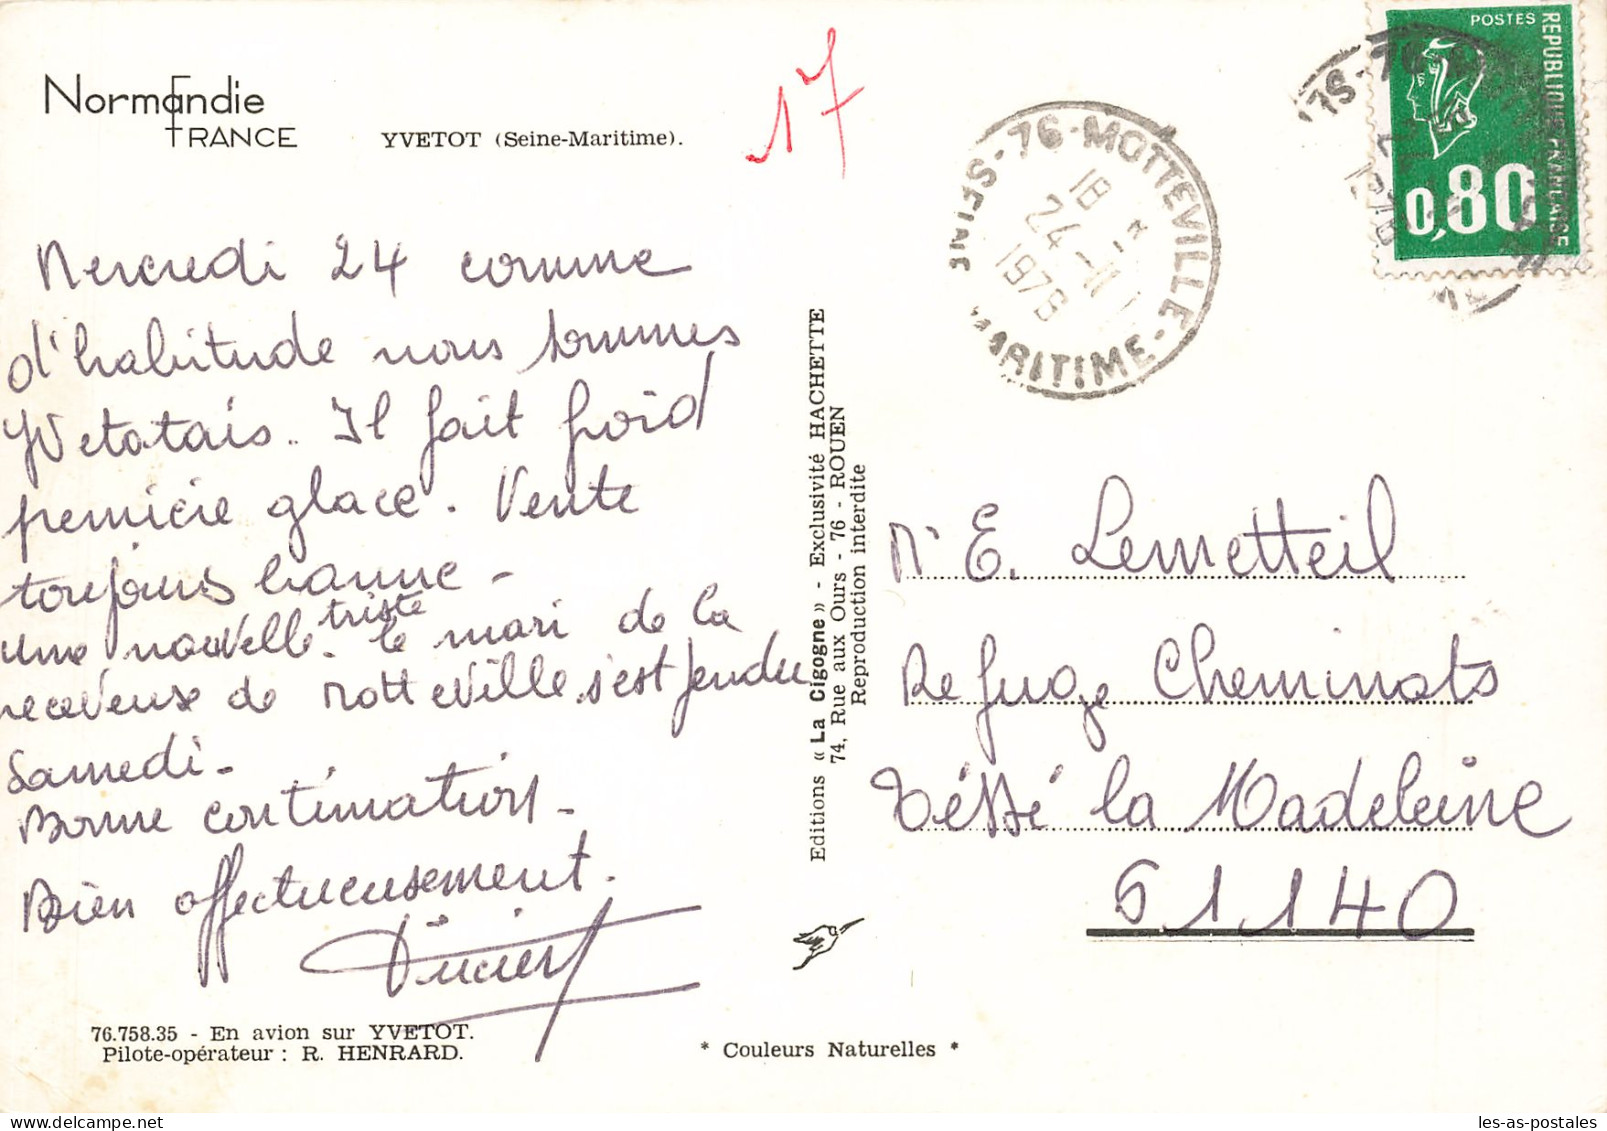 Normandie
FRANCE
YVETOT (Seine-Maritime).
17
76 - MOTTEVILLE
SEINE MARITIME -
18 *
24 - 11
1976
POSTES
REPUBLIQUE FRANÇAISE
0,80
Mercredi 24 comme
d'habitude nous sommes
Yvetotais. Il fait froid
première glace. Vente
toujours bonne -
une nouvelle triste. le mari de la
receveuse de Motteville s'est pendu
Samedi -
Bonne continuation -
Bien affectueusement.
Editions « La Cigogne » - Exclusivité HACHETTE
74, Rue aux Ours - 76 - ROUEN
Reproduction interdite
Mr E. Lemetteil
Refuge Cheminots
Téssé la Madeleine
61140
76.758.35 - En avion sur YVETOT.
Pilote-opérateur : R. HENRARD.
* Couleurs Naturelles *
les-as-postales